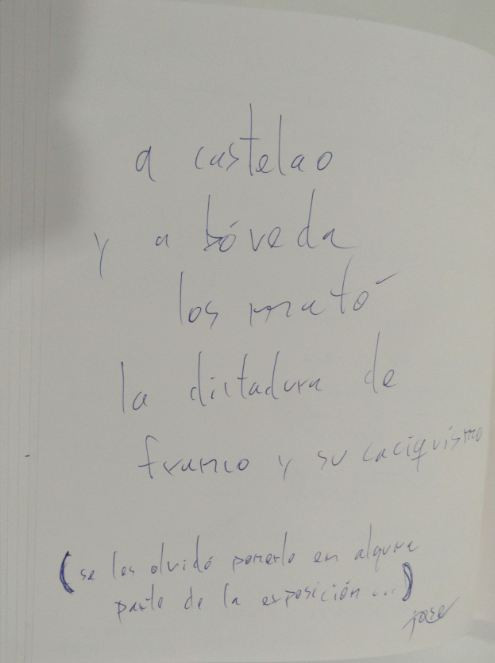 a castelao
y a bóveda
los mató
la dictadura de
franco y su caciquismo
(se les olvidó ponerlo en alguna
parte de la exposición...)